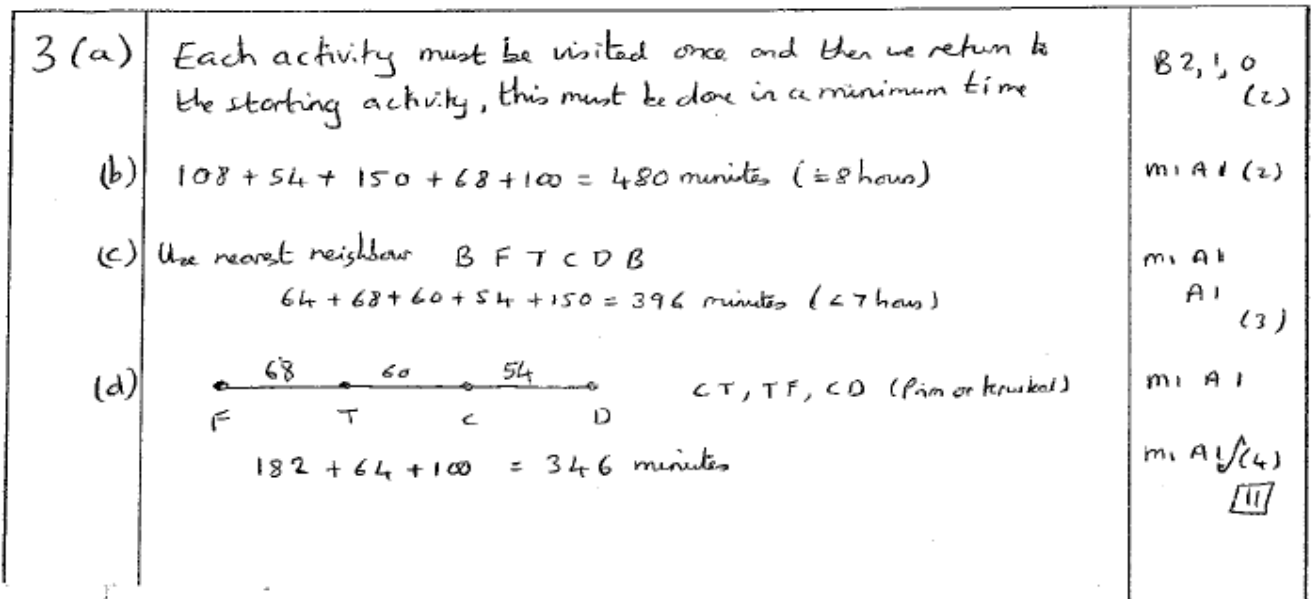 3 (a) Each activity must be visited once and then we return to B 2, 1, 0
the starting activity, this must be done in a minimum time (2)
(b) 108 + 54 + 150 + 68 + 100 = 480 minutes (= 8 hours) M1 A1 (2)
(c) Use nearest neighbour B F T C D B M1 A1
64 + 68 + 60 + 54 + 150 = 396 minutes (< 7 hours) A1
(3)
68 60 54
(d) CT, TF, CD (Prim or Kruskal) M1 A1
F T C D
182 + 64 + 100 = 346 minutes M1 A1√(4)
11